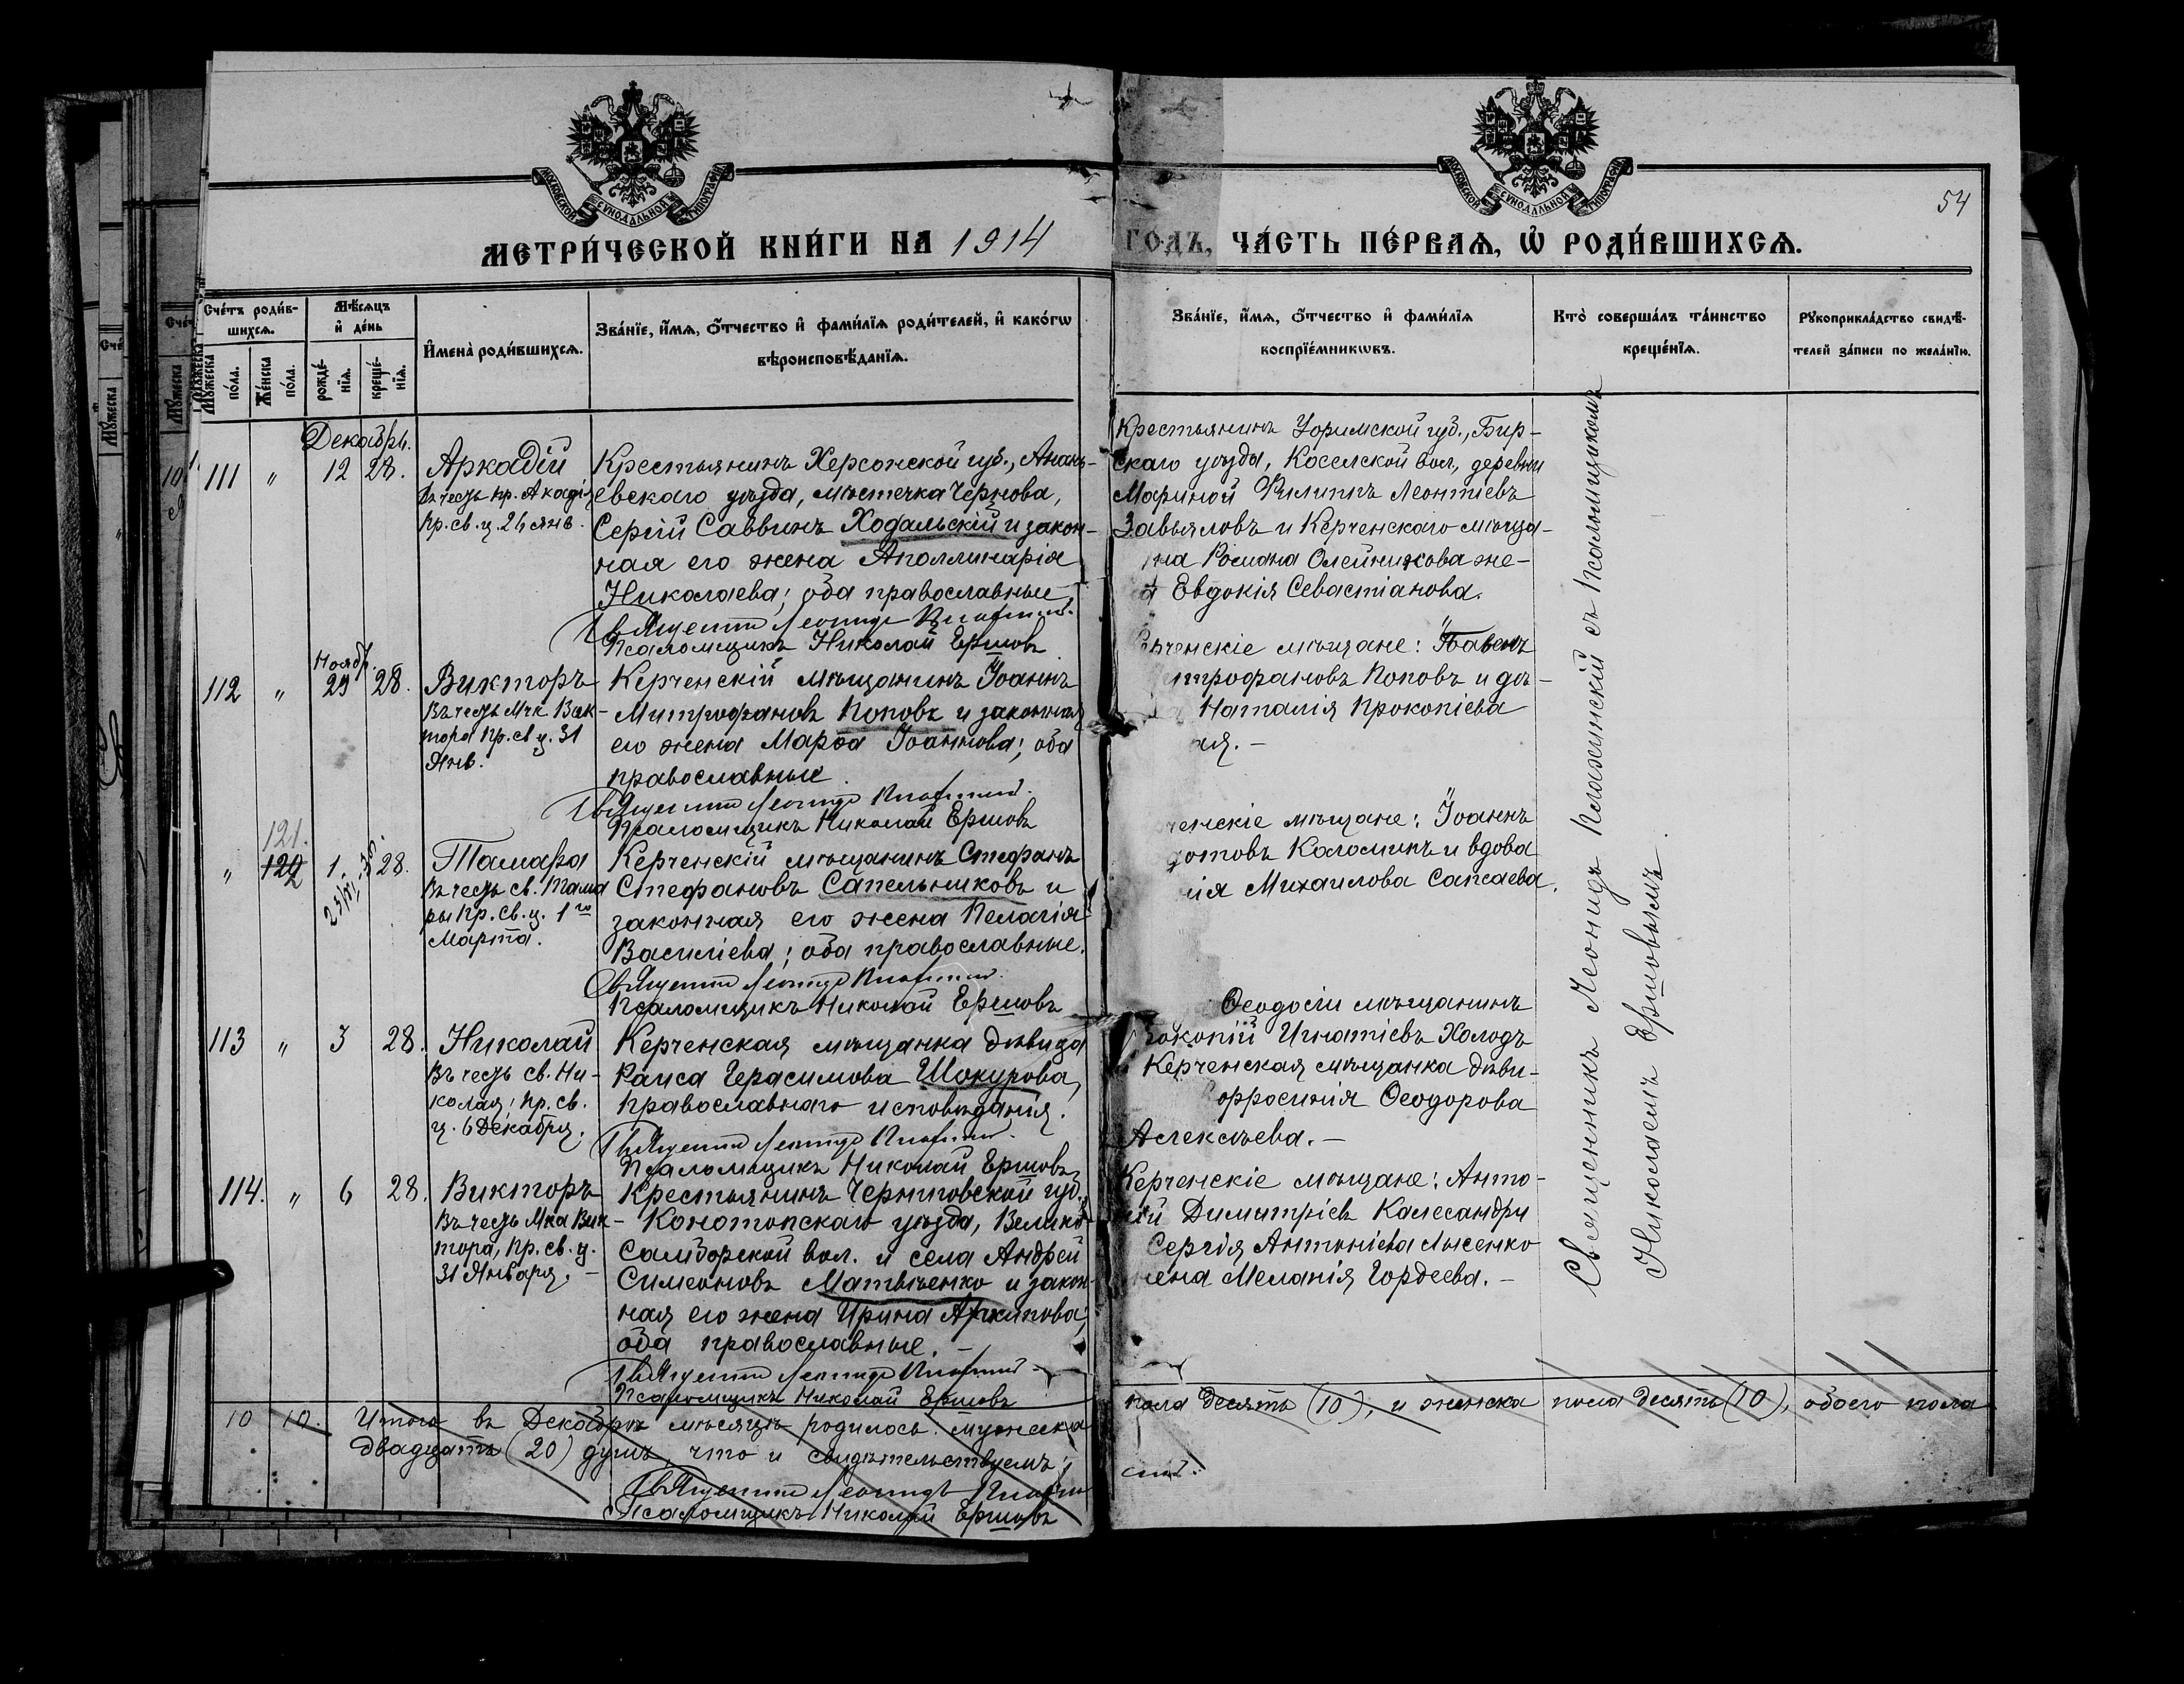 МОСКОВСКОЙ СѴНОДАЛЬНОЙ ТИПОГРАФІИ
МОСКОВСКОЙ СѴНОДАЛЬНОЙ ТИПОГРАФІИ
54
МЕТРИ́ЧЕСКОЙ КНИ́ГИ НА 1914
ГО́ДЪ, ЧА́СТЬ ПЕ́РВАѦ, Ѡ҆ РОДИ́ВШИХСѦ.
Сче́тъ роди́в-
шихсѧ.
Мѣ́сѧцъ
и҆ де́нь
Мꙋ́жеска
по́ла.
Же́нска
по́ла.
рожде́-
нїѧ.
креще́-
нїѧ.
И҆мена̀ роди́вшихсѧ.
Зва́нїе, и҆́мѧ, ѻ҆́тчество и҆ фами́лїѧ роди́телей, и҆ како́гѡ
вѣроисповѣ́данїѧ.
Зва́нїе, и҆́мѧ, ѻ҆́тчество и҆ фами́лїѧ
воспрїе́мникѡвъ.
Кто̀ соверша́лъ та́инство
креще́нїѧ.
Рꙋкоприкла́дство свидѣ́-
телей за́писи по жела́нїю.
Декабрь.
111 " 12 28.
Аркадій
Въ честь пр. Акадія
Пр. св. ц. 26 янв.
Крестьянинъ Херсонской губ., Анань-
евскаго уѣзда, мѣстечка Чернова,
Сергій Саввинъ Ходальскій и закон-
ная его жена Аполлинарія
Николаева; оба православные
Священникъ Леонидъ
Псаломщикъ Николай Ершовъ
Крестьянинъ Уфимской губ., Бир-
скаго уѣзда, Касевской вол., деревни
Филиппъ Леонтіевъ
Завьяловъ и Керченскаго мѣща-
на Романа Олейникова же-
Евдокія Севастіанова.
Ноябр.
112 " 29 28.
Викторъ
Въ честь Мчк. Вик-
тора Пр. св. ц. 31
Янв.
Керченскій мѣщанинъ Іоаннъ
Митрофановъ Поповъ и законная
его жена Марѳа Іоаннова; оба
православные
Священникъ Леонидъ
Псаломщикъ Николай Ершовъ
Керченскіе мѣщане: Павелъ
итрофановъ Поповъ и дѣ-
Наталія Прокопіева
ая. —
121.
" 122 1. 28.
Тамара
Въ честь св. Тама
ры Пр. св. ц. 1го
Марта.
Керченскій мѣщанинъ Стефанъ
Стефановъ Сапельниковъ и
законная его жена Пелагія
Василіева; оба православные.
Священникъ Леонидъ
Псаломщикъ Николай Ершовъ
ченскіе мѣщане: Іоаннъ
отовъ Каломинъ и вдова
ія Михаилова Сапсаева.
113 " 3 28.
Николай
Въ честь св. Ни-
колая; Пр. св.
ц. 6 Декабря.
Керченская мѣщанка дѣвица
Раиса Герасимова Шокурова,
православнаго исповѣданія.
Священникъ Леонидъ
Псаломщикъ Николай Ершовъ
Ѳеодосіи мѣщанинъ
рокопій Игнатіевъ Холодъ
Керченская мѣщанка дѣви-
офросинія Ѳеодорова
Алексѣева. —
114. " 6 28.
Викторъ
Въ честь Мка Вик-
тора, Пр. св. ц.
31 Января. —
Крестьянинъ Черниговской губ.,
Конотопскаго уѣзда, Велико-
Самборской вол. и села Андрей
Симеоновъ Матвіенко и закон-
ная его жена Ирина Архипова;
оба православные. —
Священникъ Леонидъ
Псаломщикъ Николай Ершовъ
Керченскіе мѣщане: Анто-
ній Димитріевъ Калесандри
Сергія Антоніева Лысенко
жена Меланія Гордеева. —
Священникъ Леонидъ Пляжинскій съ Псаломщикомъ
Николаемъ Ершовымъ.
10 10. Итого въ Декабрѣ мѣсяцѣ родилось: мужска
пола десять (10), и женска пола десять (10), обоего пола
двадцать (20) душъ, что и свидѣтельствуемъ:
Священникъ Леонидъ
Псаломщикъ Николай Ершовъ